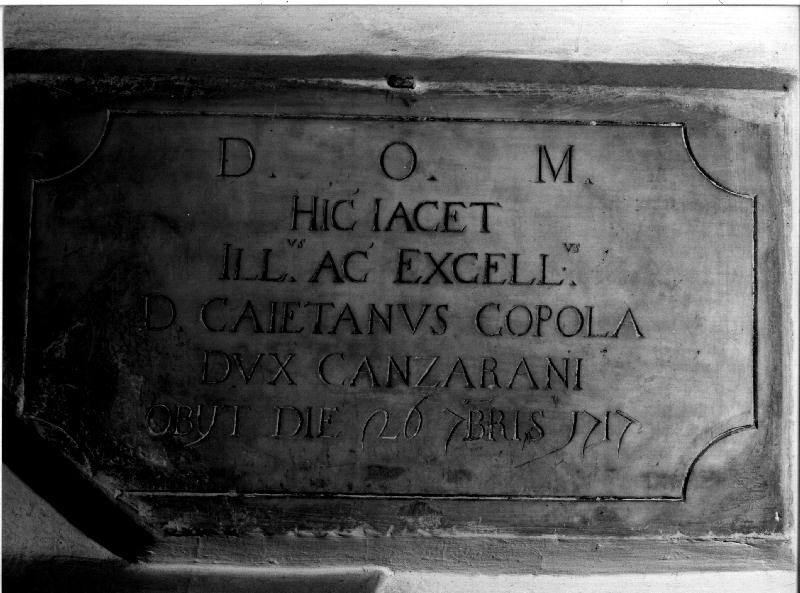 D. O. M.
HIC IACET
ILL.VS AC EXCELL.VS
D. CAIETANVS COPOLA
DVX CANZARANI
OBIJT DIE 26 7BRIS 1717